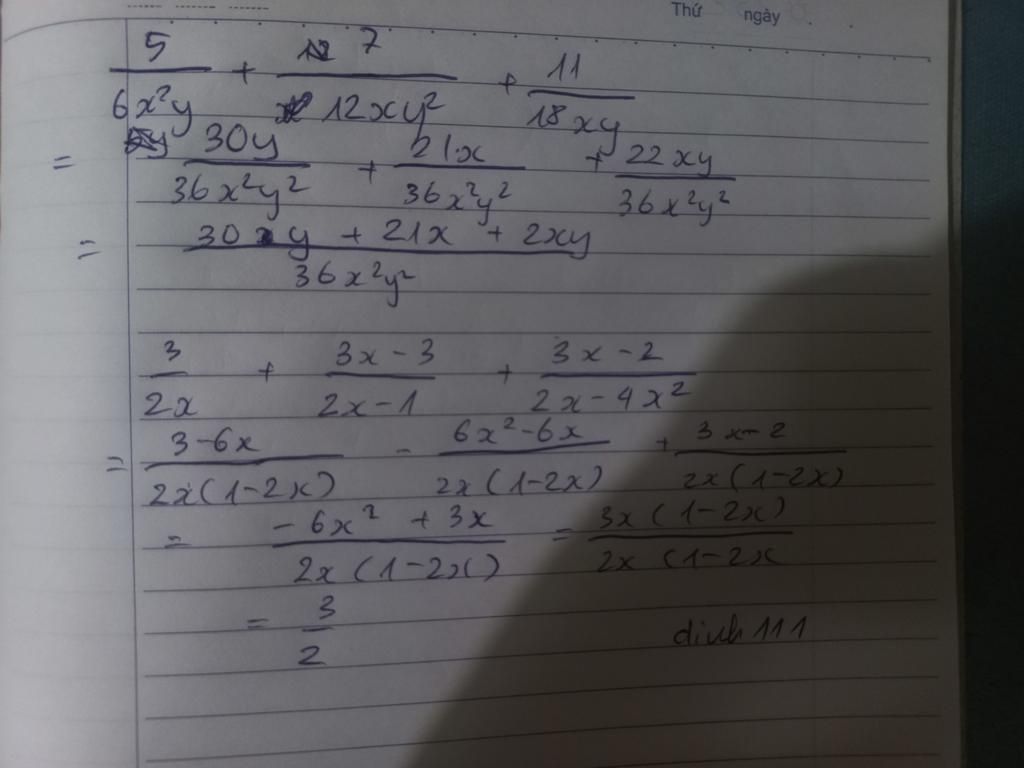 Thứ ngày
5/6x²y + 7/12xy² + 11/18xy
= 30y/36x²y² + 21x/36x²y² + 22xy/36x²y²
= (30y + 21x + 2xy)/36x²y²
3/2x + (3x-3)/(2x-1) + (3x-2)/(2x-4x²)
= (3-6x)/2x(1-2x) - (6x²-6x)/2x(1-2x) + (3x-2)/2x(1-2x)
= (-6x² + 3x)/2x(1-2x) = 3x(1-2x)/2x(1-2x
= 3/2
dinh 111